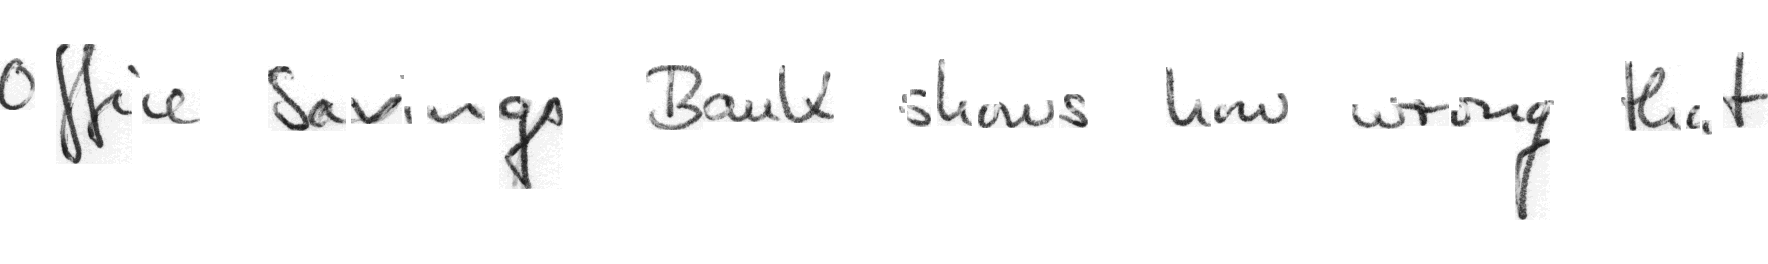 Office Savings Bank shows how wrong that